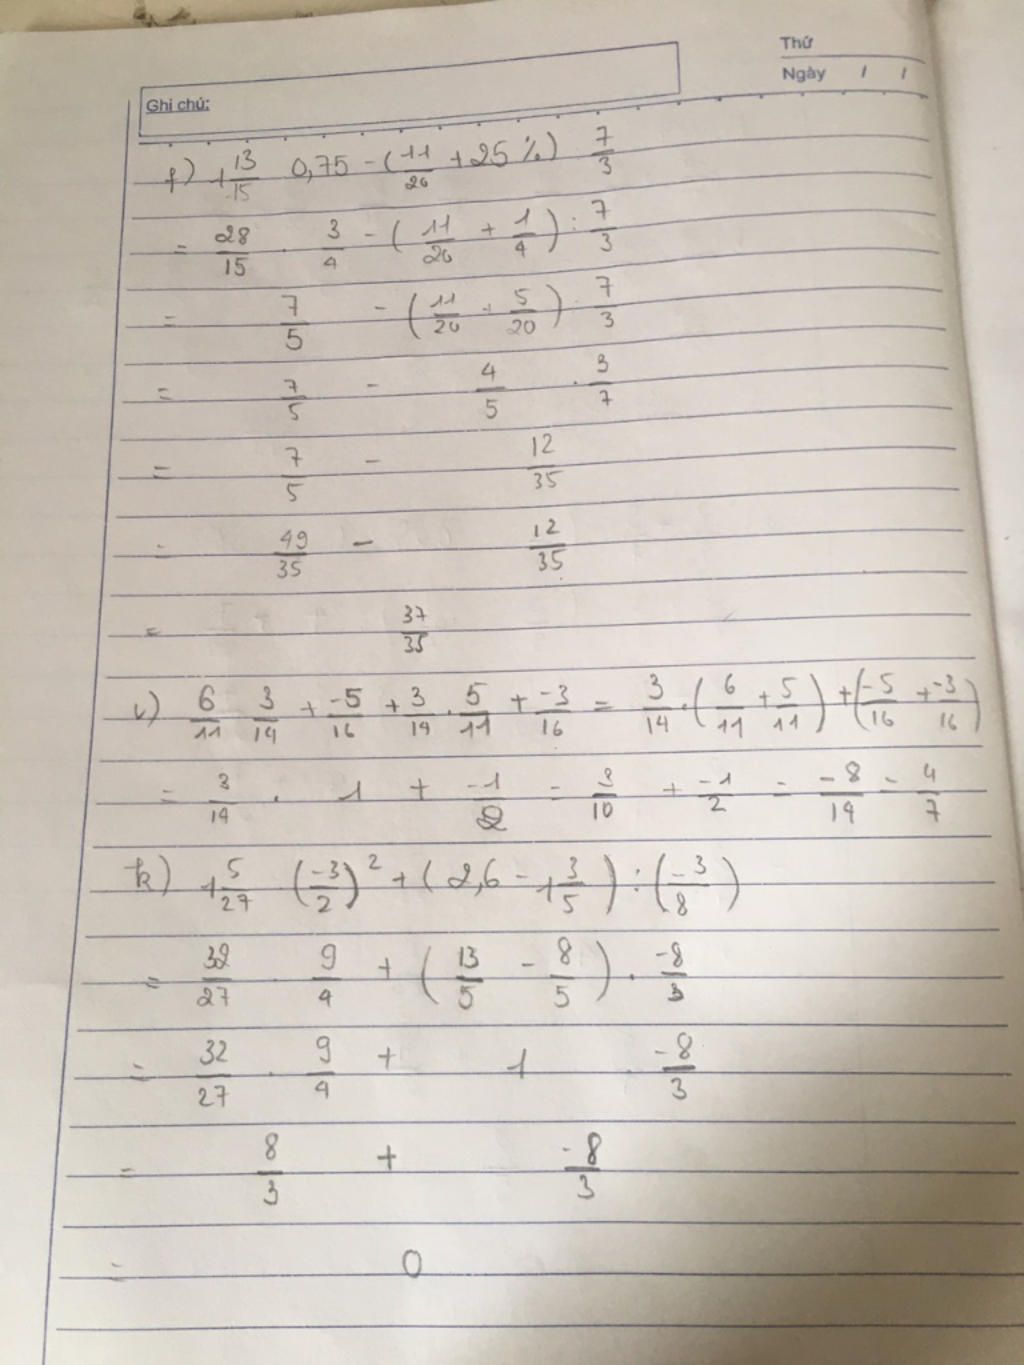 Thứ
Ngày / /
Ghi chú:
f) 1 13/15 0,75 - (11/20 + 25%) : 7/3
= 28/15 . 3/4 - (11/20 + 1/4) : 7/3
= 7/5 - (11/20 + 5/20) : 7/3
= 7/5 - 4/5 . 3/7
= 7/5 - 12/35
= 49/35 - 12/35
= 37/35
i) 6/11 . 3/14 + -5/16 + 3/14 . 5/11 + -3/16 = 3/14 . (6/11 + 5/11) + (-5/16 + -3/16)
= 3/14 . 1 + -1/2 = 3/10 + -1/2 = -8/14 = 4/7
k) 1 5/27 . (-3/2)² + (2,6 - 1 3/5) : (-3/8)
= 32/27 . 9/4 + (13/5 - 8/5) . -8/3
= 32/27 . 9/4 + 1 . -8/3
= 8/3 + -8/3
= 0